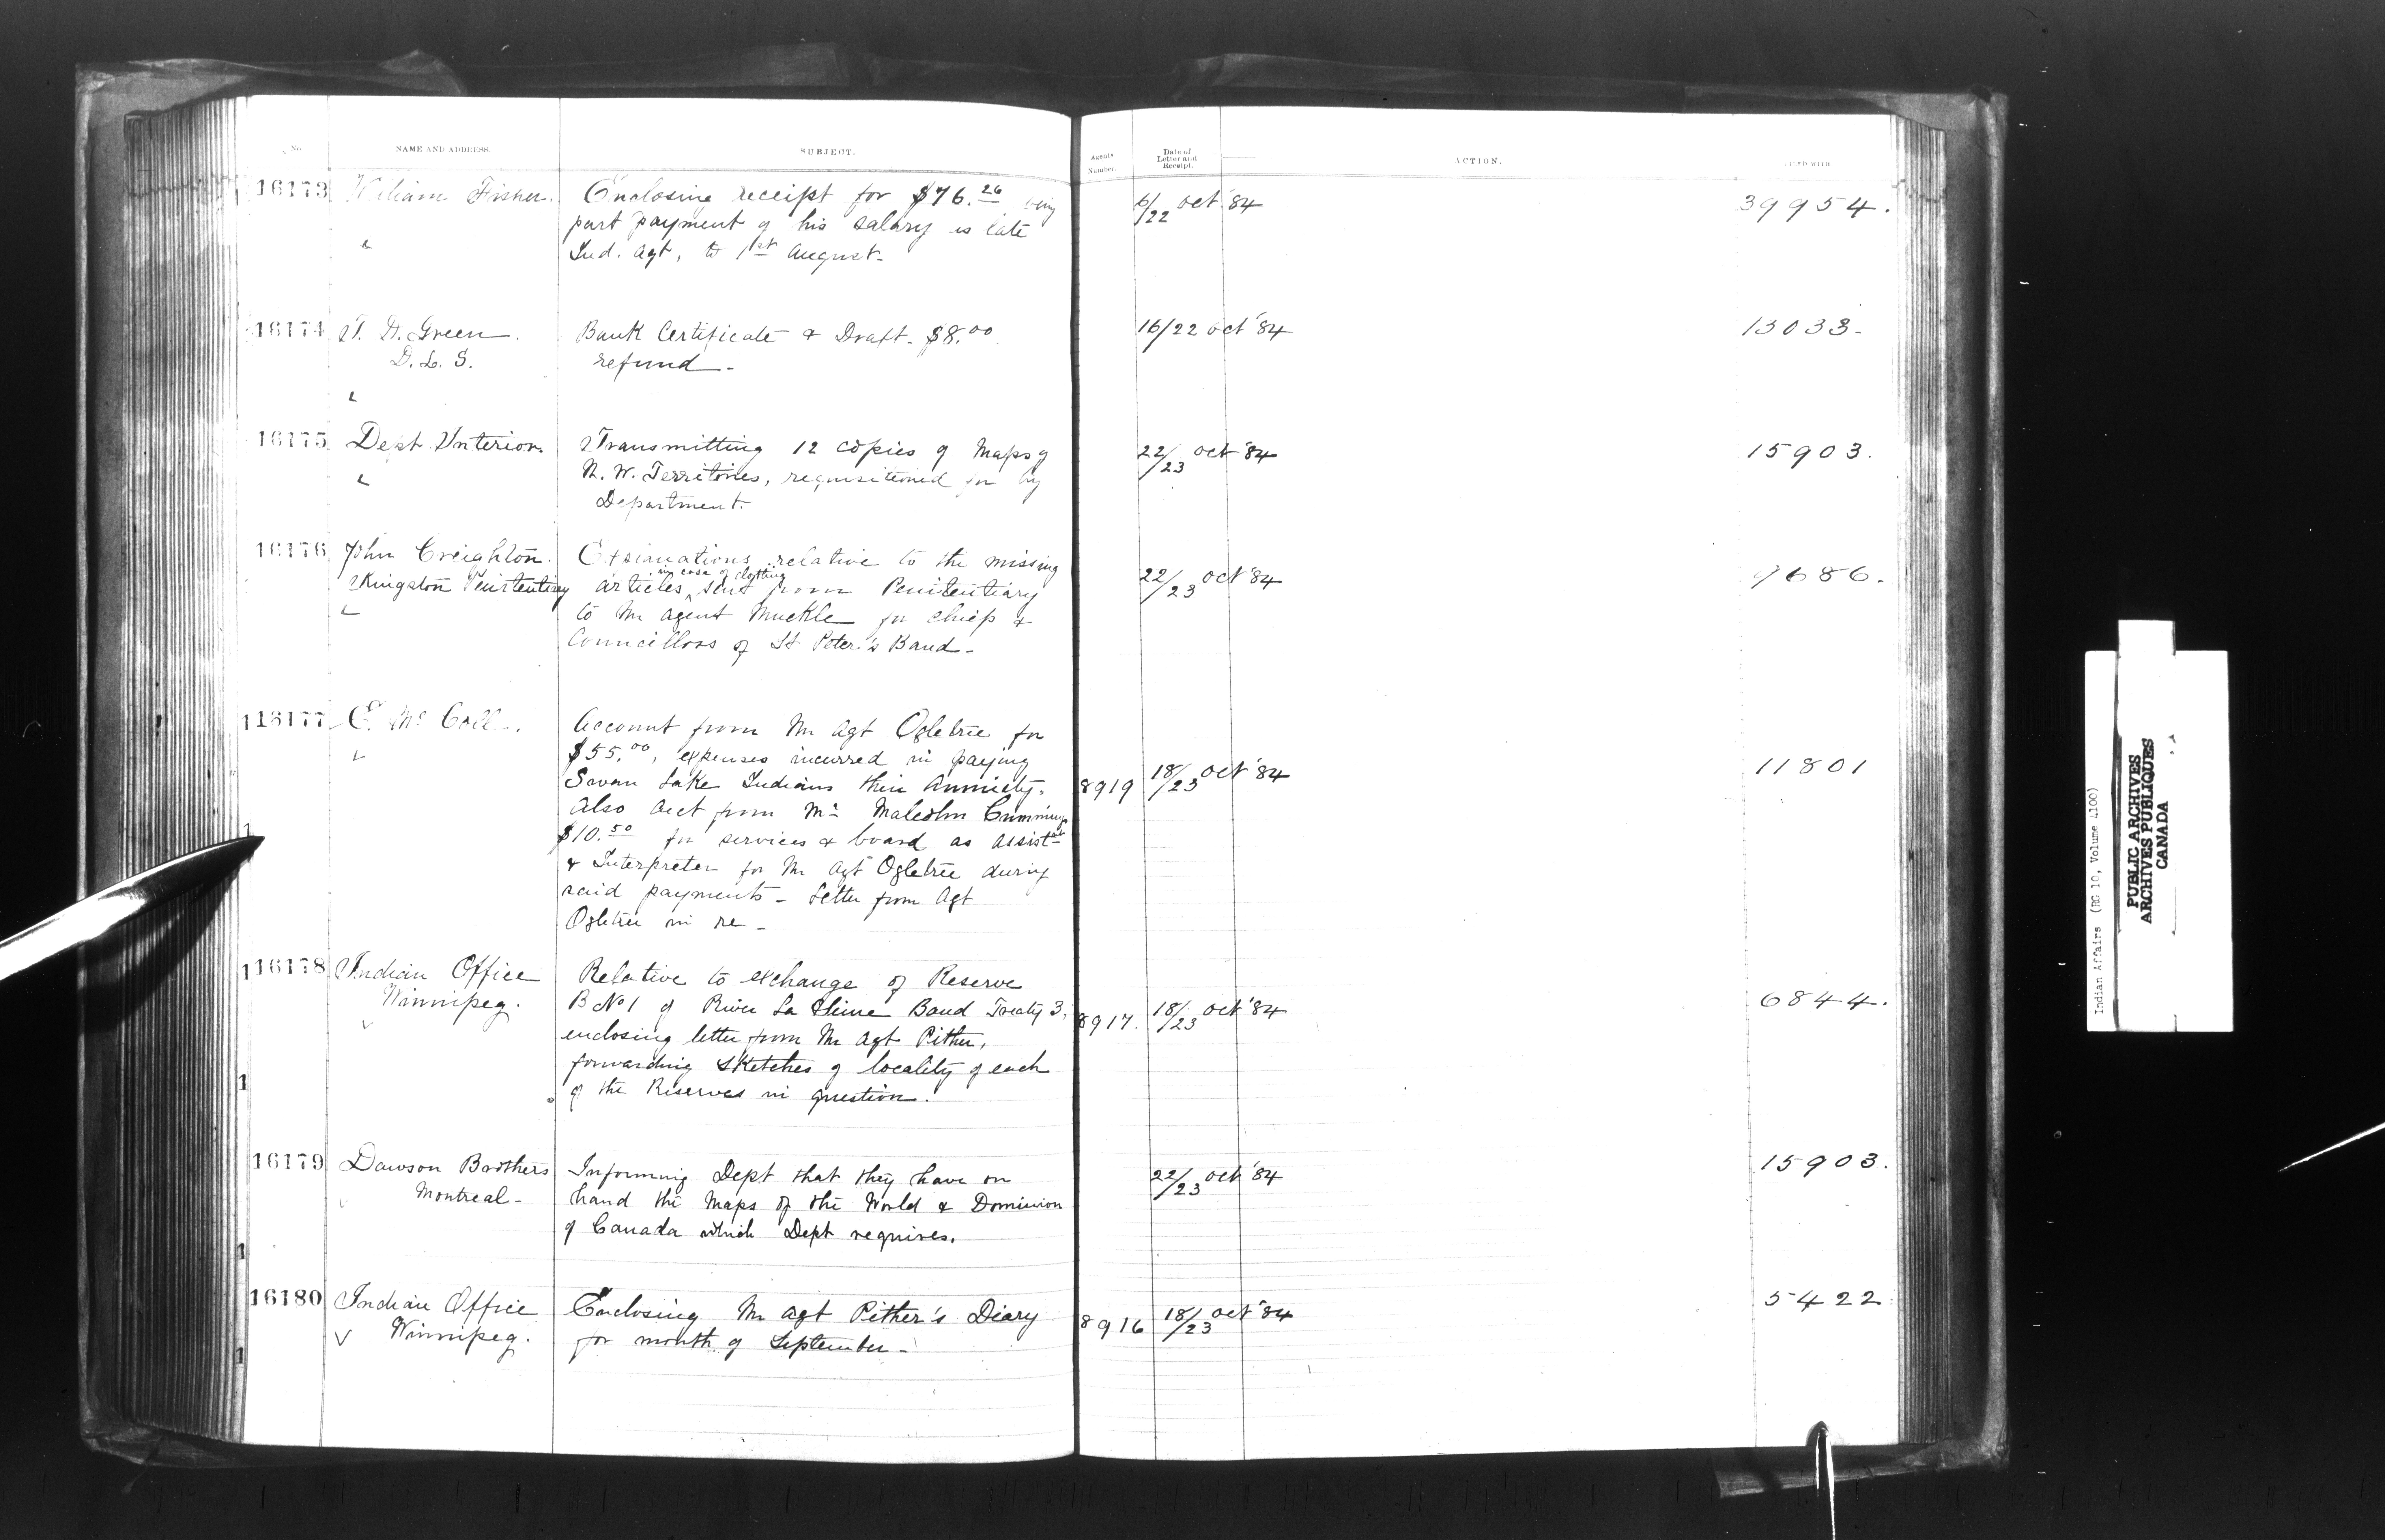 No.
NAME AND ADDRESS.
SUBJECT.
Agents Number.
Date of Letter and Receipt.
ACTION.
FILED WITH
16173 William Fisher. Enclosing receipt for $76.26 being
part payment of his salary as late
Ind. Agt, to 1st August-
6/22 Oct '84
39954.
16174 T. D. Green.
D. L. S.
Bank Certificate & Draft- $8.00
refund-
16/22 Oct '84
13033-
16175 Dept Interior
Transmitting 12 copies of Maps of
N. W. Territories, requisitioned for by
Department-
22/23 Oct '84
15903.
16176 John Creighton.
Kingston Penitentiary
Explanations relative to the missing
articles in case of clothing sent from Penitentiary
to Mr Agent Muckle for chiefs &
Councillors of St Peter's Band-
22/23 Oct '84
7686.
116177 E. McColl-.
Account from Mr Agt Ogletree for
$55.00, expenses incurred in paying
Swan Lake Indians their Annuity.
Also Acct from Mr Malcolm Cummings
$10.50 for services & board as Assist
& Interpreter for Mr Agt Ogletree during
said payments - Letter from Agt
Ogletree in re-
8919
18/23 Oct '84
11801
116178 Indian Office
Winnipeg.
Relative to exchange of Reserve
B No 1 of River La Seine Band Treaty 3,
enclosing letter from Mr Agt Pither,
forwarding sketches of locality of each
of the Reserves in question.
8917.
18/23 Oct '84
6844.
16179 Dawson Brothers
Montreal-
Informing Dept that they have on
hand the Maps of the World & Dominion
of Canada which Dept requires.
22/23 Oct '84
15903.
16180 Indian Office
Winnipeg.
Enclosing Mr Agt Pither's Diary
for month of September-
8916
18/23 Oct '84
5422
Indian Affairs (RG 10, Volume 1100)
PUBLIC ARCHIVES
ARCHIVES PUBLIQUES
CANADA